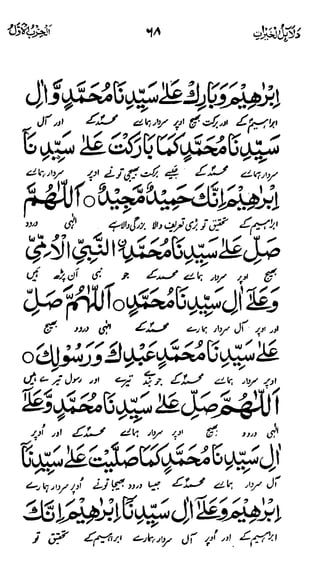 دلائل الخیرات ٦٨ الحزب الاول
اِبْرٰهِيْمَ وَبَارِكْ عَلٰى سَيِّدِنَا مُحَمَّدٍ وَّاٰلِ
ابراہیم کے اور برکت بھیج اوپر سردار ہمارے محمدؐ کے اور آل
سَيِّدِنَا مُحَمَّدٍ كَمَا بَارَكْتَ عَلٰى سَيِّدِنَا
سردار ہمارے محمدؐ کے جیسے برکت بھیجی تونے اوپر سردار ہمارے
اِبْرٰهِيْمَ اِنَّكَ حَمِيْدٌ مَّجِيْدٌ ○ اَللّٰهُمَّ
ابراہیم کے تحقیق تو بڑی تعریف والا بزرگی والا ہے الٰہی درود
صَلِّ عَلٰى سَيِّدِنَا مُحَمَّدِ نِ النَّبِيِّ الْاُمِّيِّ
بھیج اوپر سردار ہمارے محمدؐ کے جو نبی اُن پڑھ ہیں
وَعَلٰى اٰلِ سَيِّدِنَا مُحَمَّدٍ ○ اَللّٰهُمَّ صَلِّ
اور اوپر آل سردار ہمارے محمدؐ کے الٰہی درود بھیج
عَلٰى سَيِّدِنَا مُحَمَّدٍ عَبْدِكَ وَرَسُوْلِكَ ○
اوپر سردار ہمارے محمدؐ کے جو بندے تیرے اور رسول تیرے ہیں
اَللّٰهُمَّ صَلِّ عَلٰى سَيِّدِنَا مُحَمَّدٍ وَّعَلٰٓى
الٰہی درود بھیج اوپر سردار ہمارے محمدؐ کے اور اُوپر
اٰلِ سَيِّدِنَا مُحَمَّدٍ كَمَا صَلَّيْتَ عَلٰى سَيِّدِنَآ
آل سردار ہمارے محمدؐ کے جیسا درود بھیجا تونے اوپر سردار ہمارے
اِبْرٰهِيْمَ وَعَلٰٓى اٰلِ سَيِّدِنَآ اِبْرٰهِيْمَ اِنَّكَ
ابراہیم کے اور اُوپر آل سردار ہمارے ابراہیم کے تحقیق تو